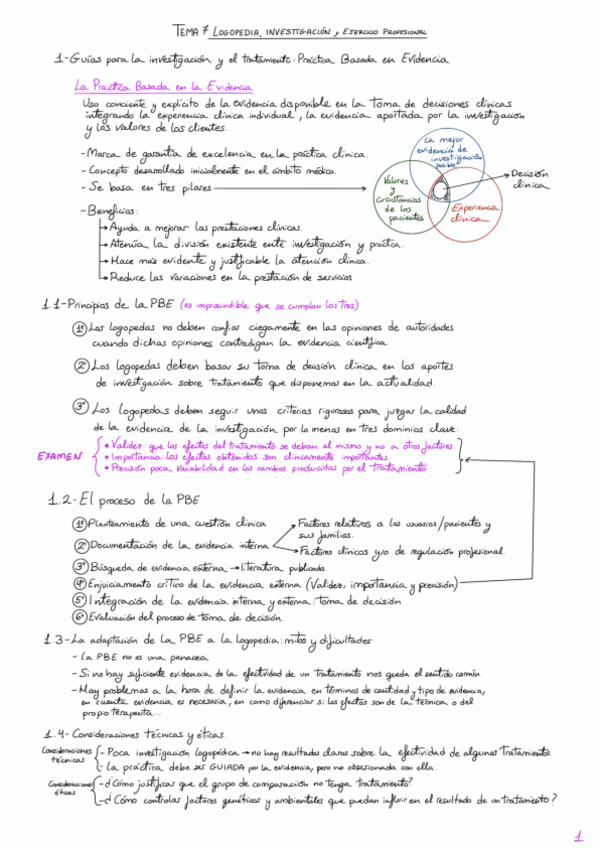 TEMA 7 LOGOPEDIA, INVESTIGACIÓN y EJERCICIO PROFESIONAL
1-Guías para la investigación y el tratamiento: Práctica Basada en Evidencia
La Práctica Basada en la Evidencia
Uso conciente y explícito de la evidencia disponible en la toma de decisiones clínicas
integrando la experiencia clínica individual, la evidencia aportada por la investigación
y los valores de los clientes.
- Marca de garantía de excelencia en la práctica clínica.
- Concepto desarrollado inicialmente en el ámbito médico.
- Se basa en tres pilares
La mejor
evidencia de
investigación
posible
Valores
y
circustancias
de los
pacientes
Experiencia
clínica
Decisión
clínica
- Beneficios:
Ayuda a mejorar las prestaciones clínicas.
Atenúa la división existente ente investigación y práctica.
Hace más evidente y justificable la atención clínica.
Reduce las variaciones en la prestación de servicios
1.1-Principios de la PBE (es imprescindible que se cumplan los tres)
1º Los logopedas no deben confiar ciegamente en las opiniones de autoridades
cuando dichas opiniones contradigan la evidencia científica.
2º Los logopedas deben basar su toma de decisión clínica en los aportes
de investigación sobre tratamiento que disponemos en la actualidad.
3º Los logopedas deben seguir unos criterios rigurosos para juzgar la calidad
de la evidencia de la investigación por lo menos en tres dominios clave:
EXAMEN
• Validez que los efectos del tratamiento se deban al mismo y no a otros factores.
• Importancia: los efectos obtenidos son clínicamente importantes.
• Precisión: poca variabilidad en los cambios producidos por el tratamiento
1.2- El proceso de la PBE
1º Planteamiento de una cuestión clínica
2º Documentación de la evidencia interna
Factores relativos a los usuarios/pacientes y
sus familias.
Factores clínicos y/o de regulación profesional.
3º Búsqueda de evidencia externa → literatura publicada.
4º Enjuiciamiento crítico de la evidencia externa (Validez, importancia y precisión)
5º Integración de la evidencia interna y externa: toma de decisión.
6º Evaluación del proceso de toma de decisión.
1.3-La adaptación de la PBE a la logopedia: mitos y dificultades
- La PBE no es una panacea.
- Si no hay suficiente evidencia de la efectividad de un tratamiento nos queda el sentido común.
- Hay problemas a la hora de definir la evidencia en términos de cantidad y tipo de evidencia,
en cuanta evidencia es necesaria, en como diferenciar si los efectos son de la técnica o del
propio terapeuta...
1.4- Consideraciones técnicas y éticas.
Consideraciones
técnicas
- Poca investigación logopédica → no hay resultados claros sobre la efectividad de algunos tratamientos
- La práctica debe ser GUIADA por la evidencia, pero no obsesionada con ella.
Consideraciones
éticas
- ¿Cómo justificas que el grupo de comparación no tenga tratamiento?
- ¿Cómo controlar factores genéticos y ambientales que puedan influir en el resultado de un tratamiento?
1